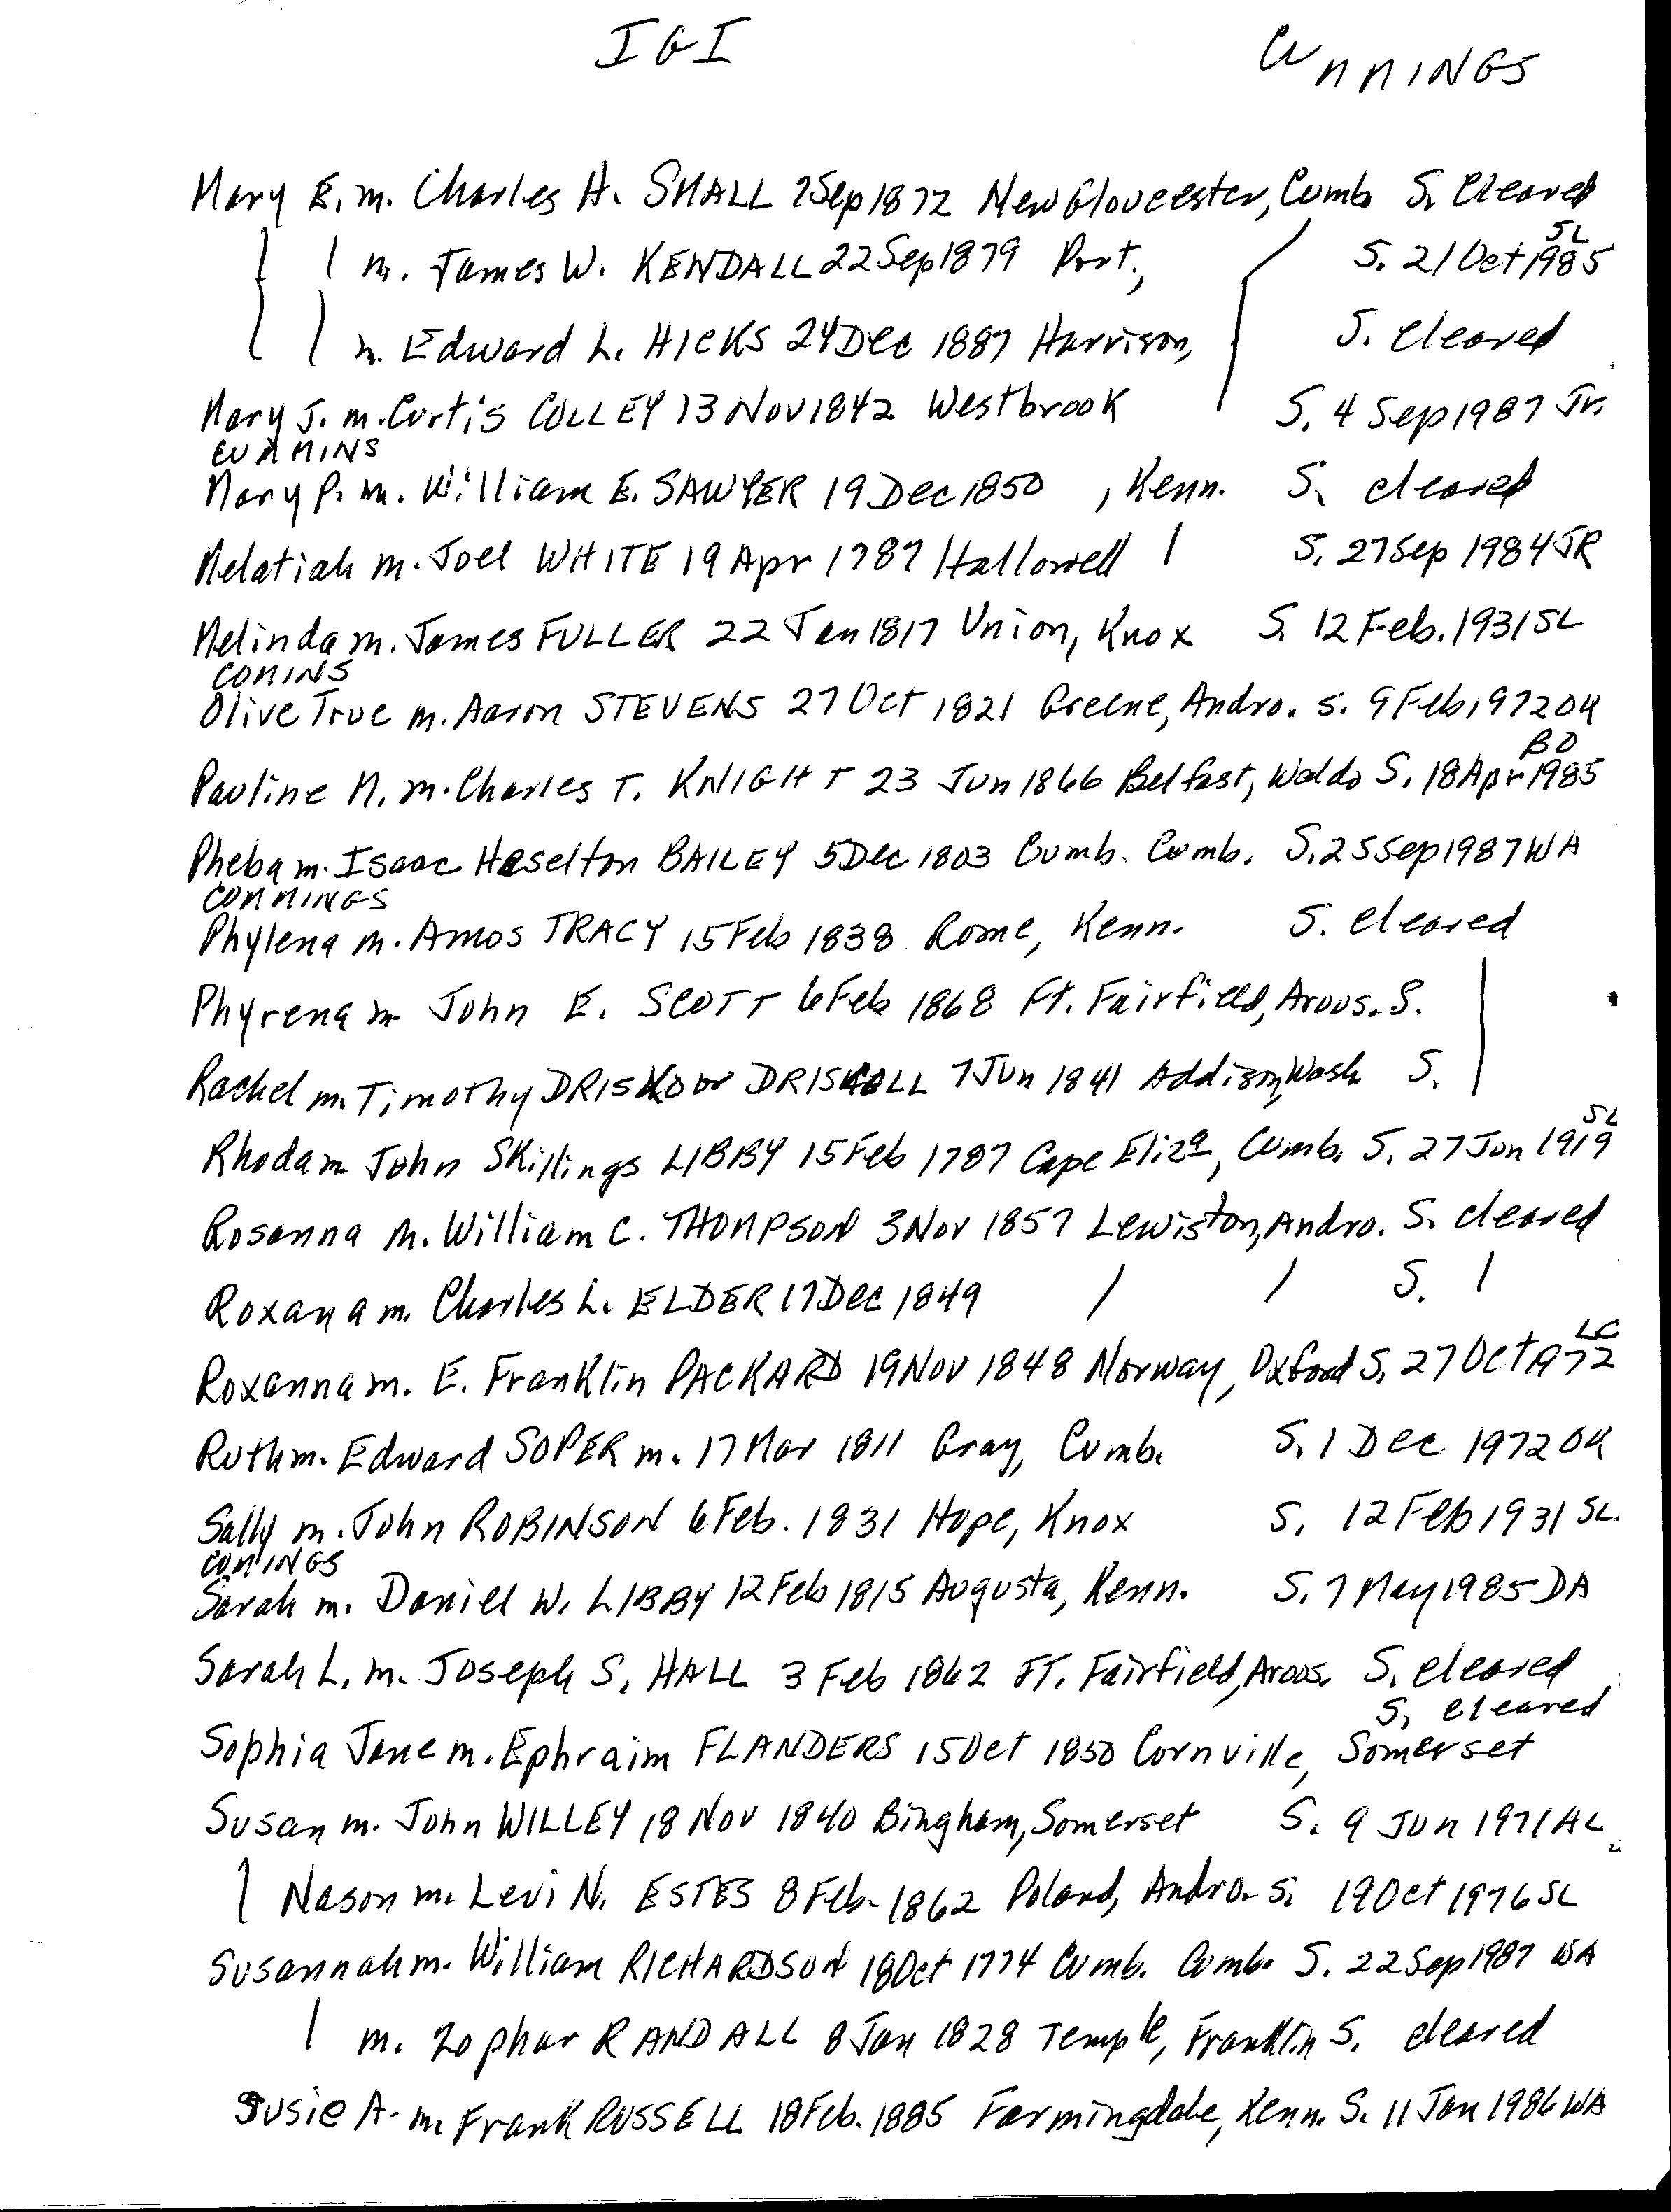 IGI CUMMINGS
Mary E. m. Charles H. SMALL 2Sep1872 New Gloucester, Cumb S. Cleared
m. James W. KENDALL 22Sep1879 Port., S. 21 Oct 1985 SL
m. Edward L. HICKS 24Dec 1887 Harrison, S. Cleared
Mary J. m. Curtis COLLEY 13Nov1842 Westbrook S. 4 Sep1987 Jr.
CUMMINS
Mary P. m. William E. SAWYER 19Dec1850 , Kenn. S. cleared
Melatiah m. Joel WHITE 19 Apr 1787 Hallowell S. 27Sep 1984 JR
Melinda m. James FULLER 22 Jan 1817 Union, Knox S. 12 Feb. 1931 SL
COMINS
Olive True m. Aaron STEVENS 27 Oct 1821 Greene, Andro. S. 9Feb1972 OA
Pauline M. m. Charles T. KNIGHT 23 Jun 1866 Belfast, Waldo S. 18Apr1985 BO
Pheba m. Isaac Haselton BAILEY 5Dec 1803 Cumb. Cumb. S. 25Sep1987 WA
COMMINGS
Phylena m. Amos TRACY 15Feb 1838 Rome, Kenn. S. Cleared
Phyrena m John E. SCOTT 6Feb 1868 Ft. Fairfield, Aroos. S.
Rachel m. Timothy DRISKO or DRISKALL 7Jun 1841 Addison, Wash S.
Rhoda m John Skillings LIBBY 15Feb 1787 Cape Eliza, Cumb. S. 27Jun 1919 SL
Rosanna m. William C. THOMPSON 3Nov 1857 Lewiston, Andro. S. cleared
Roxana m. Charles L. ELDER 17Dec 1849 S.
Roxanna m. E. Franklin PACKARD 19Nov 1848 Norway, Oxford S. 27 Oct 1972 LG
Ruth m. Edward SOPER m. 17 Mar 1811 Gray, Cumb. S. 1 Dec 1972 OA
Sally m. John ROBINSON 6Feb. 1831 Hope, Knox S. 12 Feb 1931 SL.
COMINGS
Sarah m. Daniel W. LIBBY 12Feb 1815 Augusta, Kenn. S. 7 May1985 DA
Sarah L. m. Joseph S. HALL 3 Feb 1862 FT. Fairfield, Aroos. S. cleared
S. cleared
Sophia Jane m. Ephraim FLANDERS 15Oct 1850 Cornville, Somerset
Susan m. John WILLEY 18 Nov 1840 Bingham, Somerset S. 9 Jun 1971 AL
Nason m. Levi N. ESTES 8Feb. 1862 Poland, Andro. S. 19Oct 1976 SL
Susannah m. William RICHARDSON 18Oct 1774 Cumb. Cumb. S. 22Sep1987 WA
m. Zophar RANDALL 8Jan 1828 Temple, Franklin S. cleared
Susie A. m. Frank RUSSELL 18Feb. 1885 Farmingdale, Kenn. S. 11 Jan 1986 WA